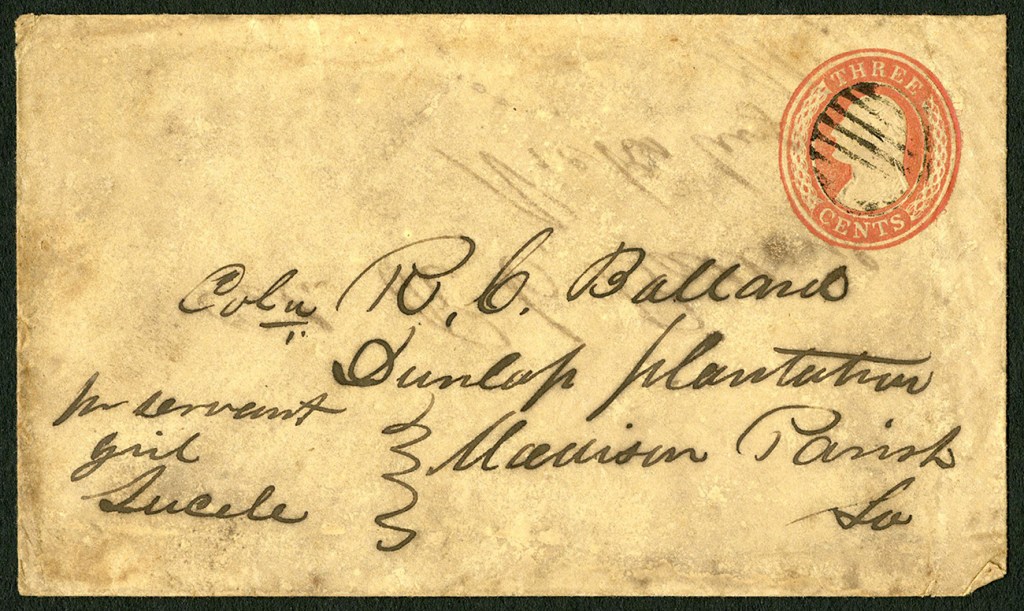 THREE
CENTS
Coln R. C. Ballard
Dunlap plantation
pr servant
girl
Lucele
Madison Parish
La